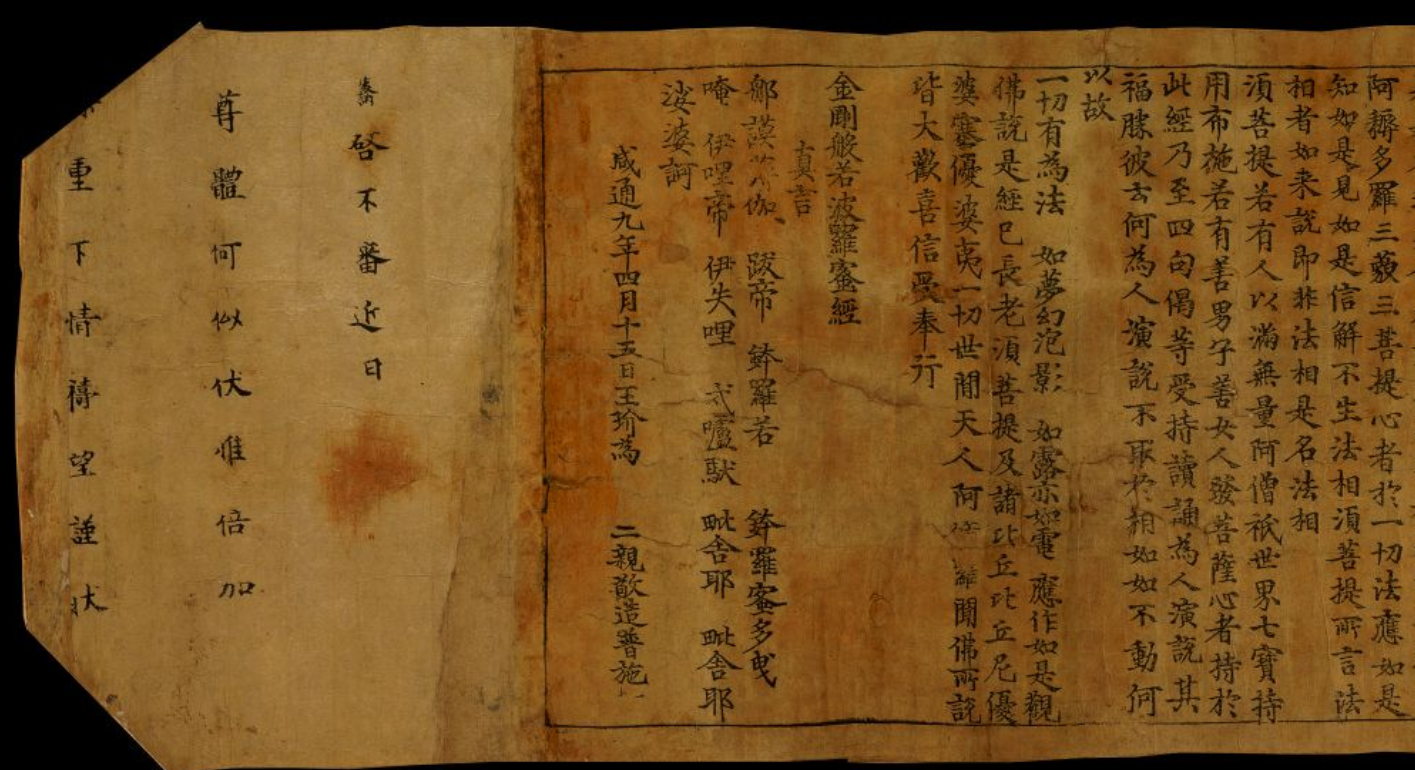 阿耨多羅三藐三菩提心者於一切法應如是
知如是見如是信解不生法相須菩提所言法
相者如来說即非法相是名法相
須菩提若有人以滿無量阿僧祇世界七寶持
用布施若有善男子善女人發菩薩心者持於
此經乃至四句偈等受持讀誦為人演說其
福勝彼云何為人演說不取於相如如不動何
以故
一切有為法 如夢幻泡影 如露亦如電 應作如是觀
佛說是經已長老須菩提及諸比丘比丘尼優
婆塞優婆夷一切世間天人阿 羅聞佛所說
皆大歡喜信受奉行
金剛般若波羅蜜經
真言
那謨 伽 跋帝 鉢羅若 鉢羅蜜多曵
唵 伊哩帝 伊失哩 戍嚧馱 毗舍耶 毗舍耶
娑婆訶
咸通九年四月十五日王玠為 二親敬造普施
啓不審近日
尊體何似伏惟倍加
重下情禱望謹狀